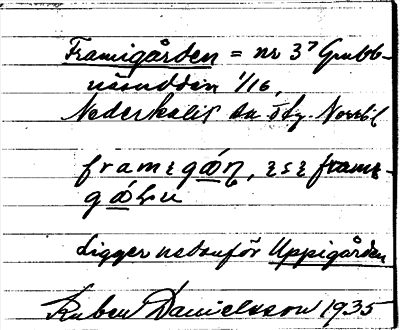 Framigården = nr 3⁷ Grubb-
näsudden 1/16,
Nederkalix sn öfg. Norrb
framɩgån,
framɩ-
gå
Ligger nedanför Uppigården
Ruben Danielsson 1935